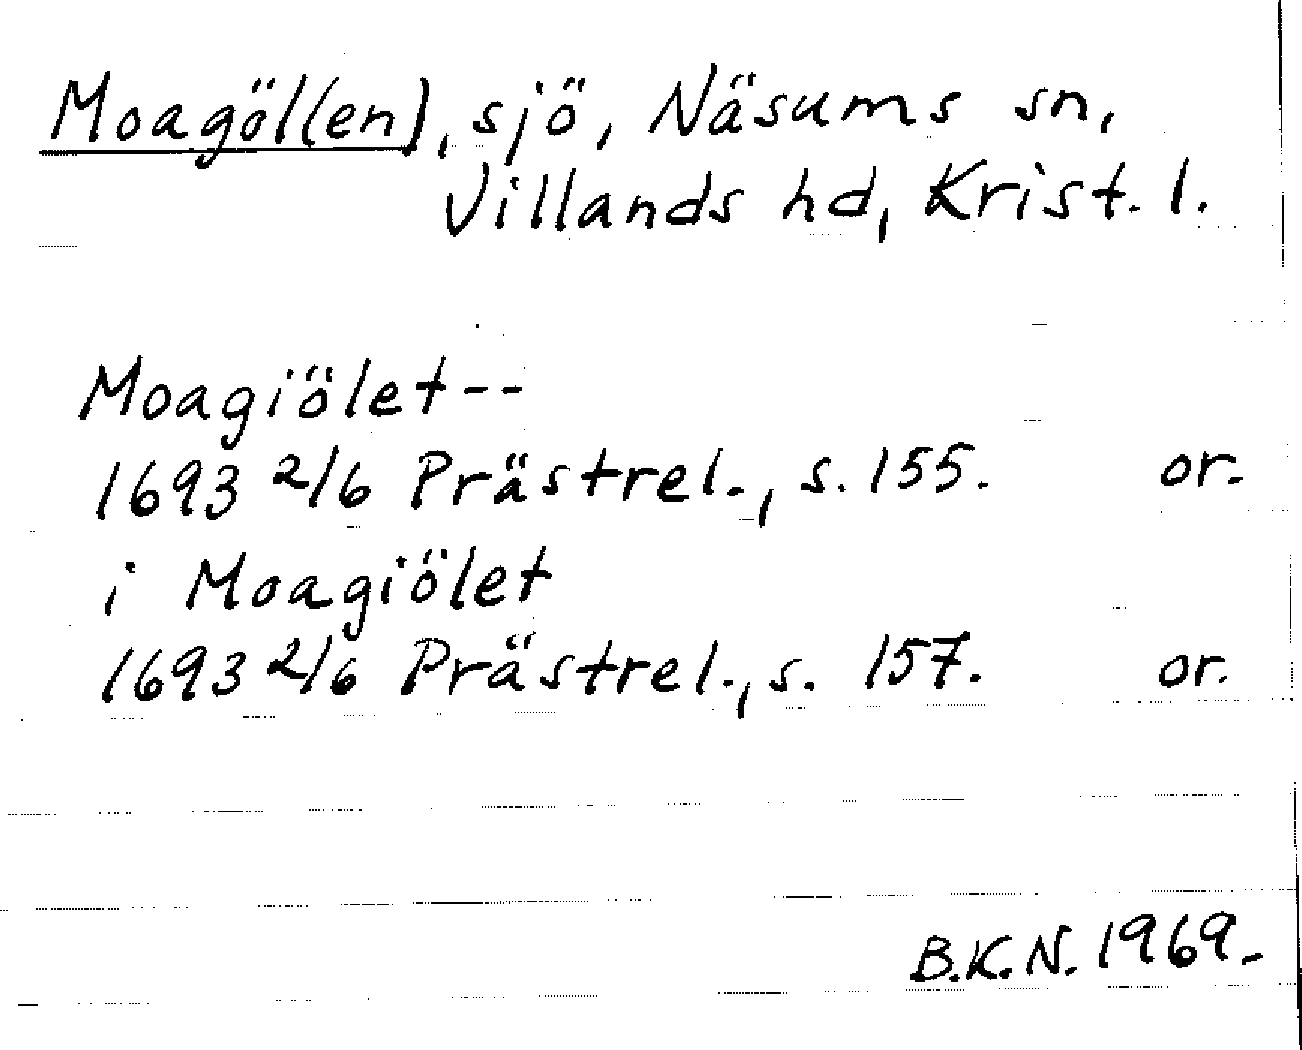 Moagöl(en), sjö, Näsums sn,
Villands hd, Krist. l.
Moagiölet--
1693 2/6 Prästrel., s. 155. or.
i Moagiölet
1693 2/6 Prästrel., s. 157. or.
B.K.N. 1969.